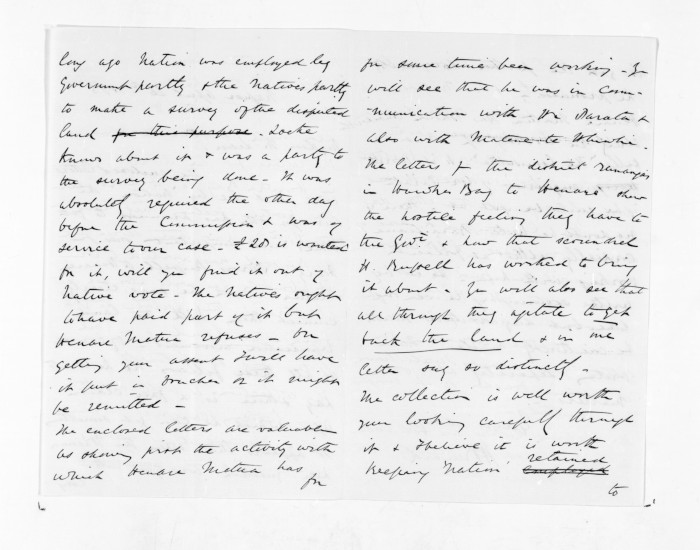 long ago Nation was employed by
Government partly & the Natives partly
to make a survey of the disputed
land for this purpose. Locke
knows about it & was a party to
the survey being done - It was
absolutely required the other day
before the Commission & was of
service to our case - £20 is wanted
for it, will you find it out of
Native vote - The Natives ought
to have paid part of it but
Henare Matua refuses - On
getting your assent I will have
it put in voucher or it might
be remitted -
The enclosed letters are valuable
as showing the activity with
which Henare Matua has
for
for some time been working - You
will see that he was in Com-
-munication with Wi Parata &
also with Matene te Whiwhi.
The letters from the district runangas
in Hawkes Bay to Henare show
the hostile feeling they have to
the Govt & how that scoundrel
H. Russell has worked to bring
it about - You will also see that
all through they agitate to get
back the land & in one
letter say so distinctly -
The collection is well worth
your looking carefully through
it & I believe it is worth
keeping Nation employed
retained
to